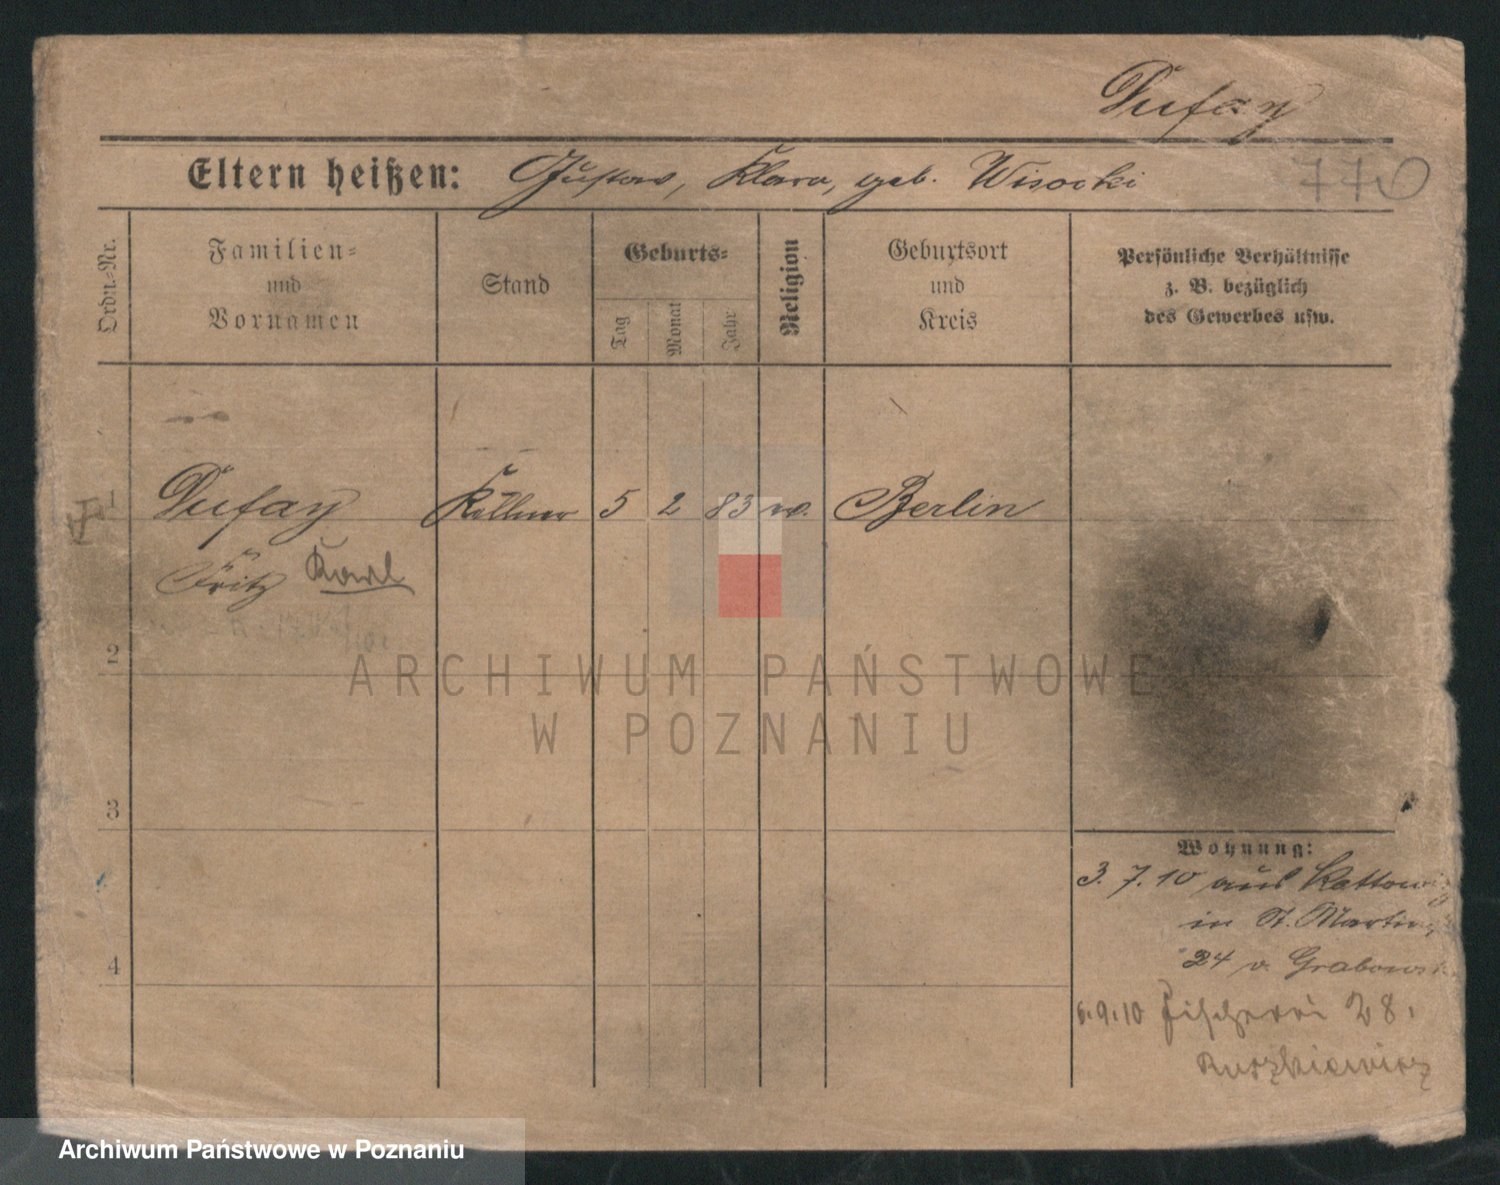 Dufay
Eltern heißen: Gustav, Klara, geb. Wisocki
770
Ordn.-Nr.
Familien-
und
Vornamen
Stand
Geburts-
Tag
Monat
Jahr
Religion
Geburtsort
und
Kreis
Persönliche Verhältnisse
z. B. bezüglich
des Gewerbes usw.
1 Dufay Kellner 5 2 83 ev. Berlin
Fritz Karl
2
3
4
Wohnung:
3. 7. 10 aus Kattowitz
in St. Martin
24 v. Grabowski
6.9.10 Fischerei 28.
Ruszkiewicz
ARCHIWUM PAŃSTWOWE
W POZNANIU
Archiwum Państwowe w Poznaniu